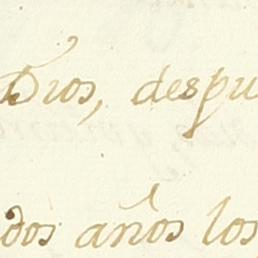 Dios, despu
dos años los